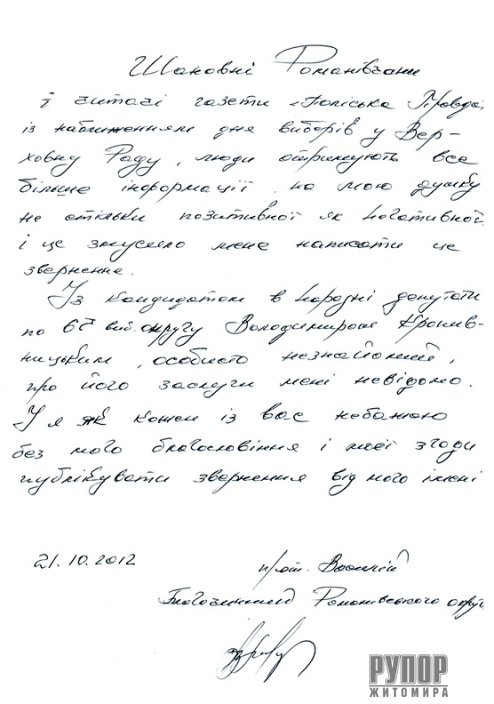 Шановні Романівчани
і читачі газети "Поліська Правда,
із наближенням дня виборів у Вер-
ховну Раду, люди отримують все
більше інформації, на мою думку
не стільки позитивної як негативної
і це змусило мене написати це
звернення.
Із кандидатом в народні депутати
по 67 виб. округу Володимиром Кропив-
ницьким, особисто незнайомий,
про його заслуги мені невідомо.
І я як кожен із вас небажаю
без мого благословіння і моєї згоди
публікувати звернення від мого імені
21.10.2012
прот. Василій
Благочинний Романівського округ
РУПОР
ЖИТОМИРА